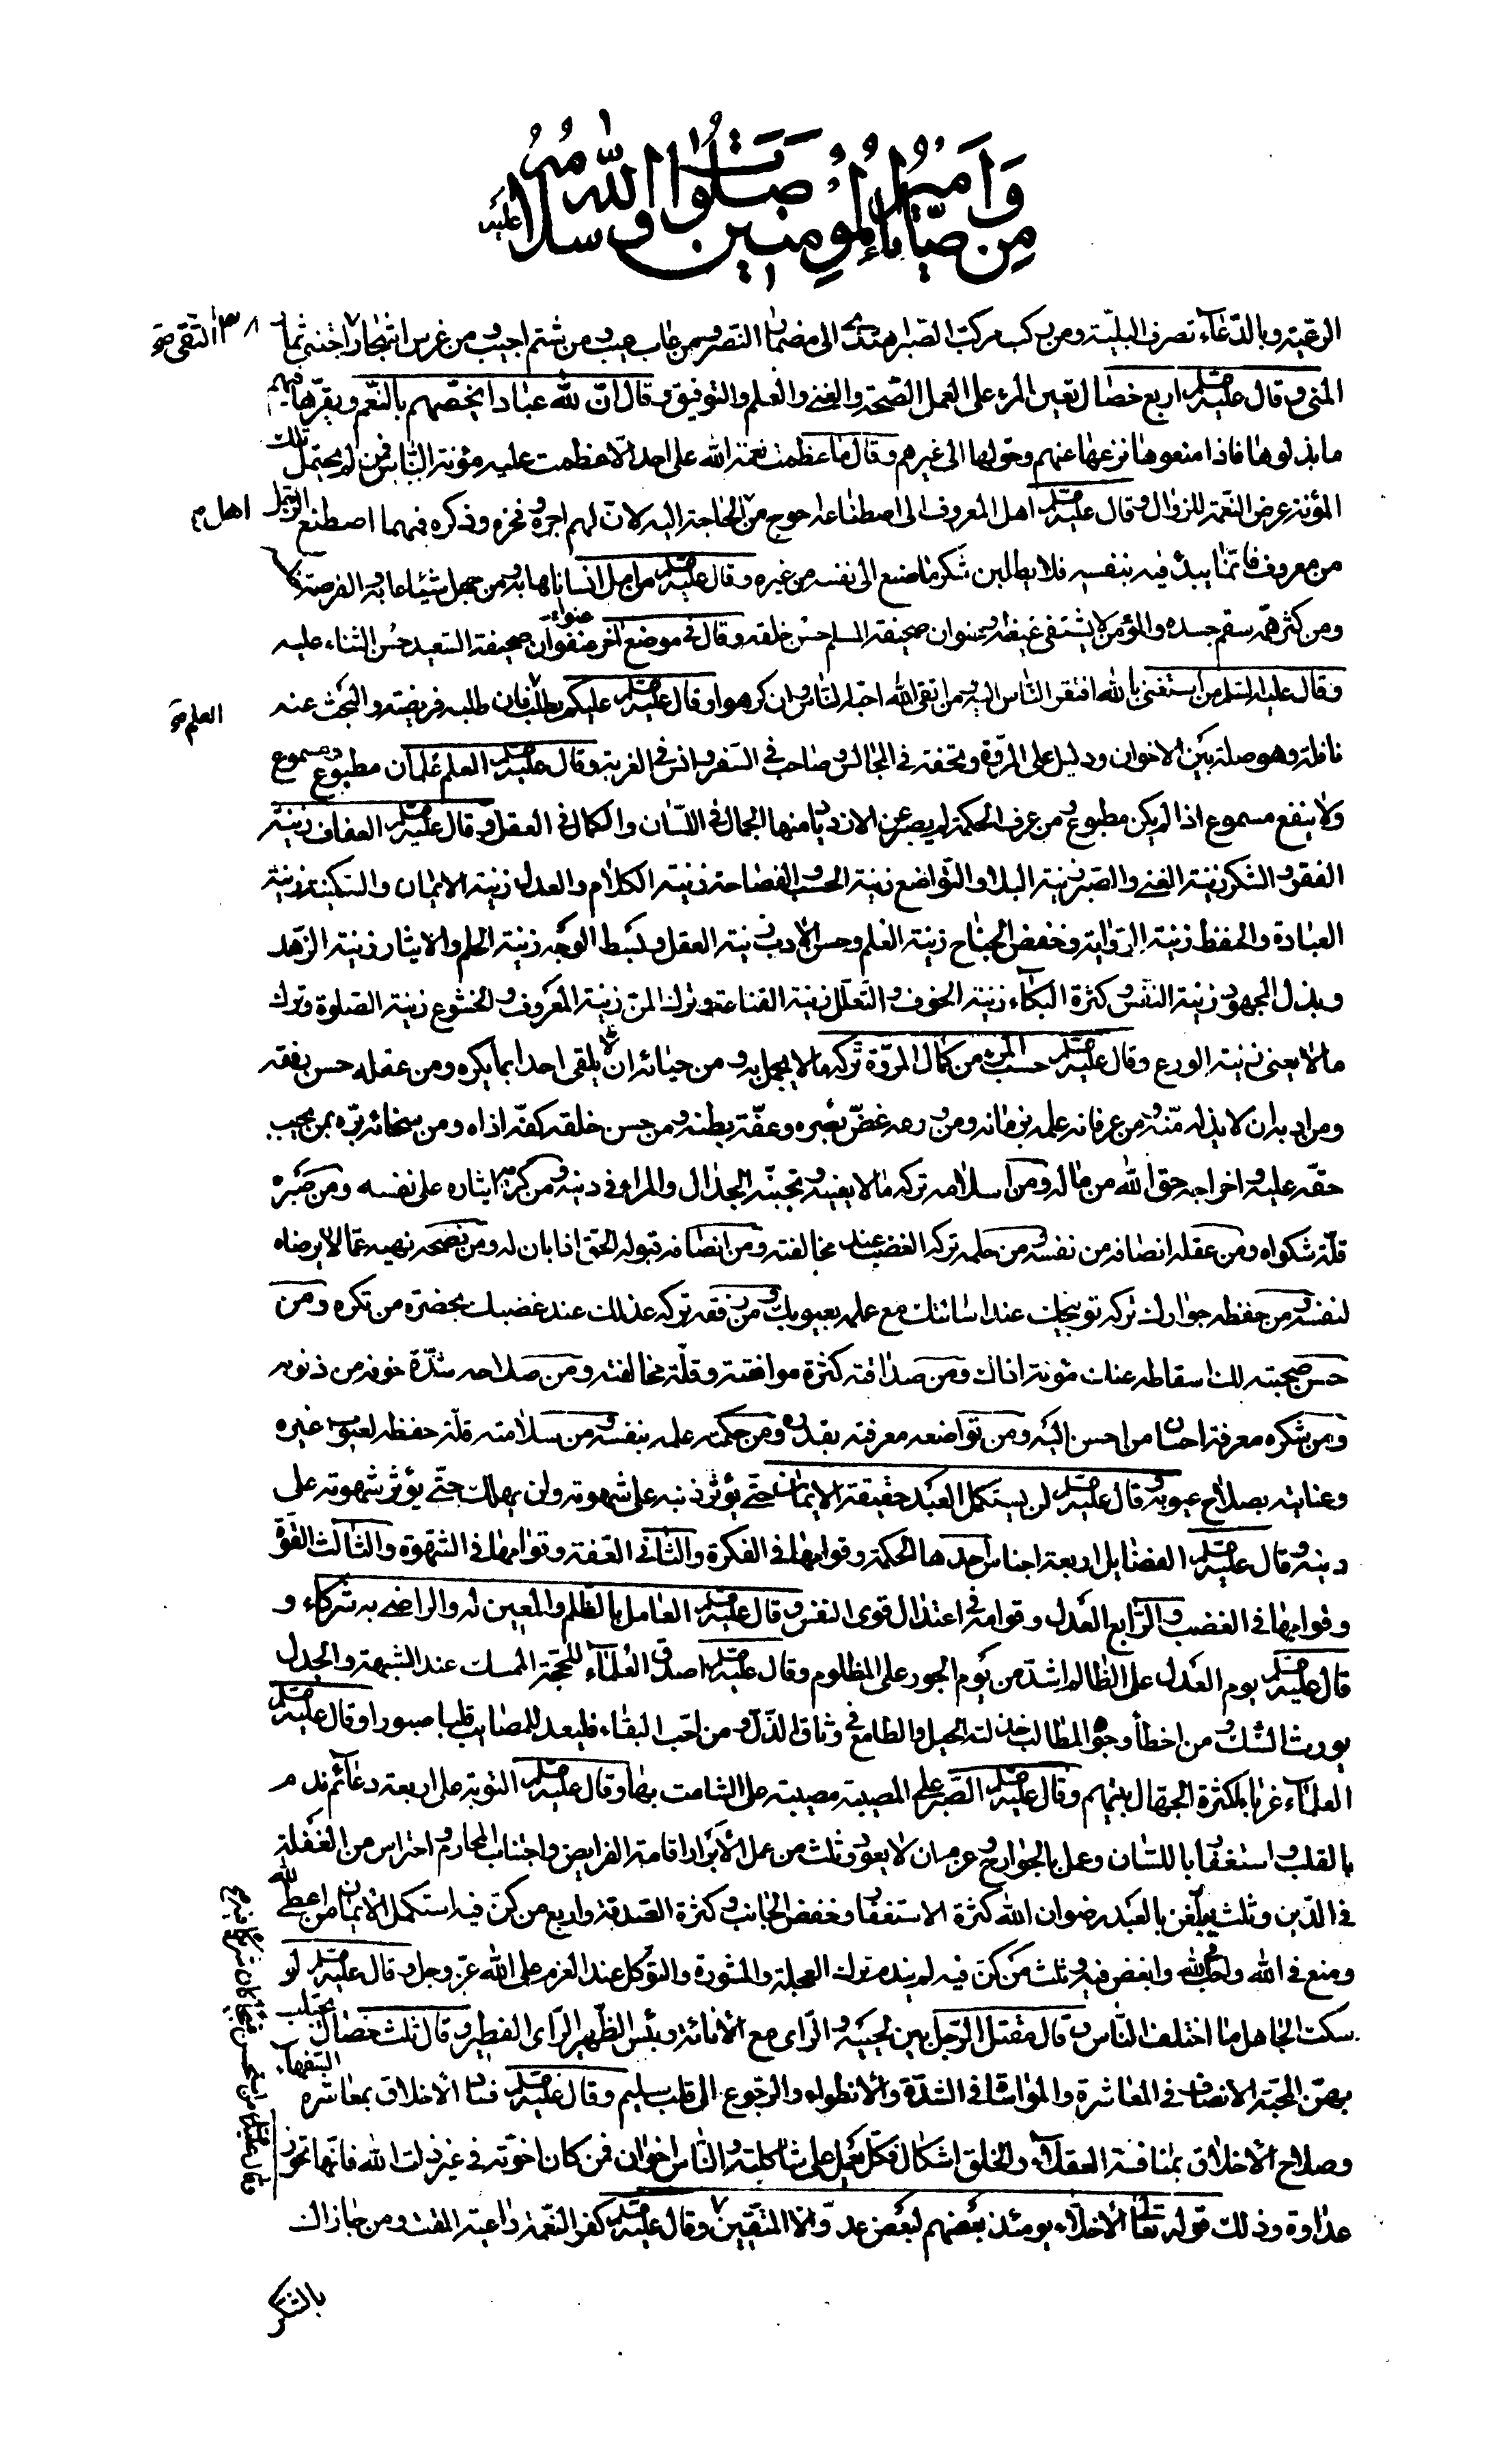 وَمِن وَصَايَا أَمِيرُ الْمُؤمِنِين صَلَوَاتُ اللّٰه وسلامُهُ عليه
الرعيّة وبالدّعآء تصرف البليّة ومن ركب مركب الصّبر اهتدى الى مضمار النّصر ومن عاب عيب ومن شتم اجيب ومن غرس اشجار التّقى اجتنى ثمار
المنى وقال عليه السلم اربع خصال تعين المرء على العمل الصّحّة والغنى والعلم والتوفيق وقال انّ للّه عبادا يخصّهم بالنّعم ويقرّها فيهم
ما بذلوها فاذا منعوها نزعها عنهم وحوّلها الى غيرهم وقال ما عظمت نعمة اللّه على احد الّا عظمت عليه مؤنة النّاس فمن لم يحتمل تلك
المؤنة عرض النّعمة للزوال وقال عليه السلم اهل المعروف الى اصطناعه احوج من اهل الحاجة اليه لانّ لهم اجره وفخره وذكره فمهما اصطنع الرجل
من معروف فانّما يبدأ فيه بنفسه فلا يطلبن شكر ما صنع الى نفسه من غيره وقال عليه السلم من امل انسانا هابه ومن جهل شيئا عابه والفرصة
ومن كثر همّه سقم جسده والمؤمن لا يشتفى غيظه وعنوان صحيفة المسلم حسن خلقه وقال فى موضع آخر عنوان صحيفة السّعيد حسن الثّناء عليه
وقال عليه السلم من استغنى باللّه افتقر النّاس اليه ومن اتقى اللّه احبّه النّاس وان كرهوا وقال عليه السلم عليكم بطلب العلم فان طلبه فريضة والبحث عنه
نافلة وهو صلة بين الاخوان ودليل على المروّة وتحفة فى المجالس وصاحب فى السّفر وانس فى الغربة وقال عليه السلم العلم علمان مطبوع ومسموع
ولا ينفع مسموع اذا لم يكن مطبوع ومن عرف الحكمة لم يصبر عن الازدياد منها الجمال فى اللّسان والكمال فى العقل وقال عليه السلم العفاف زينة
الفقر والشّكر زينة الغنى والصّبر زينة البلاء والتّواضع زينة الحسب والفصاحة زينة الكلام والعدل زينة الايمان والسّكينة زينة
العبادة والحفظ زينة الرّواية وخفض الجناح زينة العلم وحسن الادب زينة العقل وبسط الوجه زينة الحلم والايثار زينة الزّهد
وبذل المجهود زينة النّفس وكثرة البكآء زينة الخوف والتّقلّل زينة القناعة وترك المنّ زينة المعروف والخشوع زينة الصّلوة وترك
ما لا يعنى زينة الورع وقال عليه السلم حسب المرء من كمال المروّة تركه ما لا يجمل به ومن حيائه ان لا يلقى احدا بما يكره ومن عقله حسن رفقه
ومن ادبه ان لا يترك ما لا بدّ له منه ومن عرفانه علمه بزمانه ومن ورعه غضّ بصره وعفّة بطنه ومن حسن خلقه كفّه اذاه ومن سخائه برّه بمن يجب
حقّه عليه واخراجه حق اللّه من ماله ومن اسلامه تركه ما لا يعنيه وتجنّبه الجدال والمراء فى دينه ومن كرمه ايثاره على نفسه ومن صبره
قلّة شكواه ومن عقله انصافه من نفسه ومن حلمه تركه الغضب عند مخالفته ومن انصافه قبوله الحق اذا بان له ومن نصحه نهيه عمّا لا يرضاه
لنفسه ومن حفظه جوارك تركه توبيخك عند اسائتك مع علمه بعيوبك ومن رفقه تركه عذلك عند غضبك بحضرة من تكره ومن
حسن صحبته لك اسقاطه عنك مؤنة اذاك ومن صداقته كثرة موافقته وقلّة مخالفته ومن صلاحه شدّة خوفه من ذنوبه
ومن شكره معرفة احسان من احسن اليه ومن تواضعه معرفته بقدره ومن حكمته علمه بنفسه ومن سلامته قلّة حفظه لعيوب غيره
وعنايته بصلاح عيوبه وقال عليه السلم لن يستكمل العبد حقيقة الايمان حتّى يؤثر دينه على شهوته ولن يهلك حتّى يؤثر شهوته على
دينه وقال عليه السلم الفضايل اربعة اجناس احدها الحكمة وقوامها فى الفكرة والثّانى العفّة وقوامها فى الشّهوة والثّالث القوّة
وقوامها فى الغضب والرّابع العدل وقوامه فى اعتدال قوى النفس وقال عليه السلم العامل بالظّلم والمعين له والراضى به شركاء و
قال عليه السلم يوم العدل على الظّالم اشدّ من يوم الجور على المظلوم وقال عليه السلم اقصد العلمآء للمحجّة الممسك عند الشّبهة والجدل
يورث الشّك ومن اخطأ وجوه المطالب خذلته الحيل والطامع فى وثاق الذّل ومن احبّ البقاء فليعد للمصايب قلبا صبورا وقال عليه السلم
العلمآء غرباء لكثرة الجهّال بينهم وقال عليه السلم الصّبر على المصيبة مصيبة على الشامت بها وقال عليه السلم التوبة على اربعة دعآئم ندم
بالقلب واستغفار باللسان وعمل بالجوارح وعزم ان لا يعود وثلث من عمل الأبرار اقامة الفرايض واجتناب المحارم واحتراس من الغفلة
فى الدّين وثلث يبلّغن بالعبد رضوان اللّه كثرة الاستغفار وخفض الجانب وكثرة الصّدقة واربع من كنّ فيه استكمل الايمان من اعطى للّه
ومنع فى اللّه واحبّ للّه وابغض فيه وثلث من كنّ فيه لم يندم ترك العجلة والمشورة والتوكّل عند العزم على اللّه عزّ وجل وقال عليه السلم لو
سكت الجاهل ما اختلف النّاس وقال مقتل الرّجل بين لحييه والرّاى مع الأناة وبئس الظّهير الرّاى الفطير وقال ثلث خصال يجتلب
بهنّ المحبّة الانصاف فى المعاشرة والمواساة فى الشدّة والانطواء والرجوع الى قلب سليم وقال عليه السلم فساد الأخلاق بمعاشرة السّفهآء
وصلاح الأخلاق بمنافسة العقلآء والخلق اشكال فكلّ يعمل على شاكلته والنّاس اخوان فمن كان اخوّته فى غير ذات اللّه فانّها تحوز
عداوة وذلك قوله تعالى الأخلّاء يومئذ بعضهم لبعض عدوّ الّا المتّقين وقال عليه السلم كفر النّعمة داعية المقت ومن جازاك
بالشكر